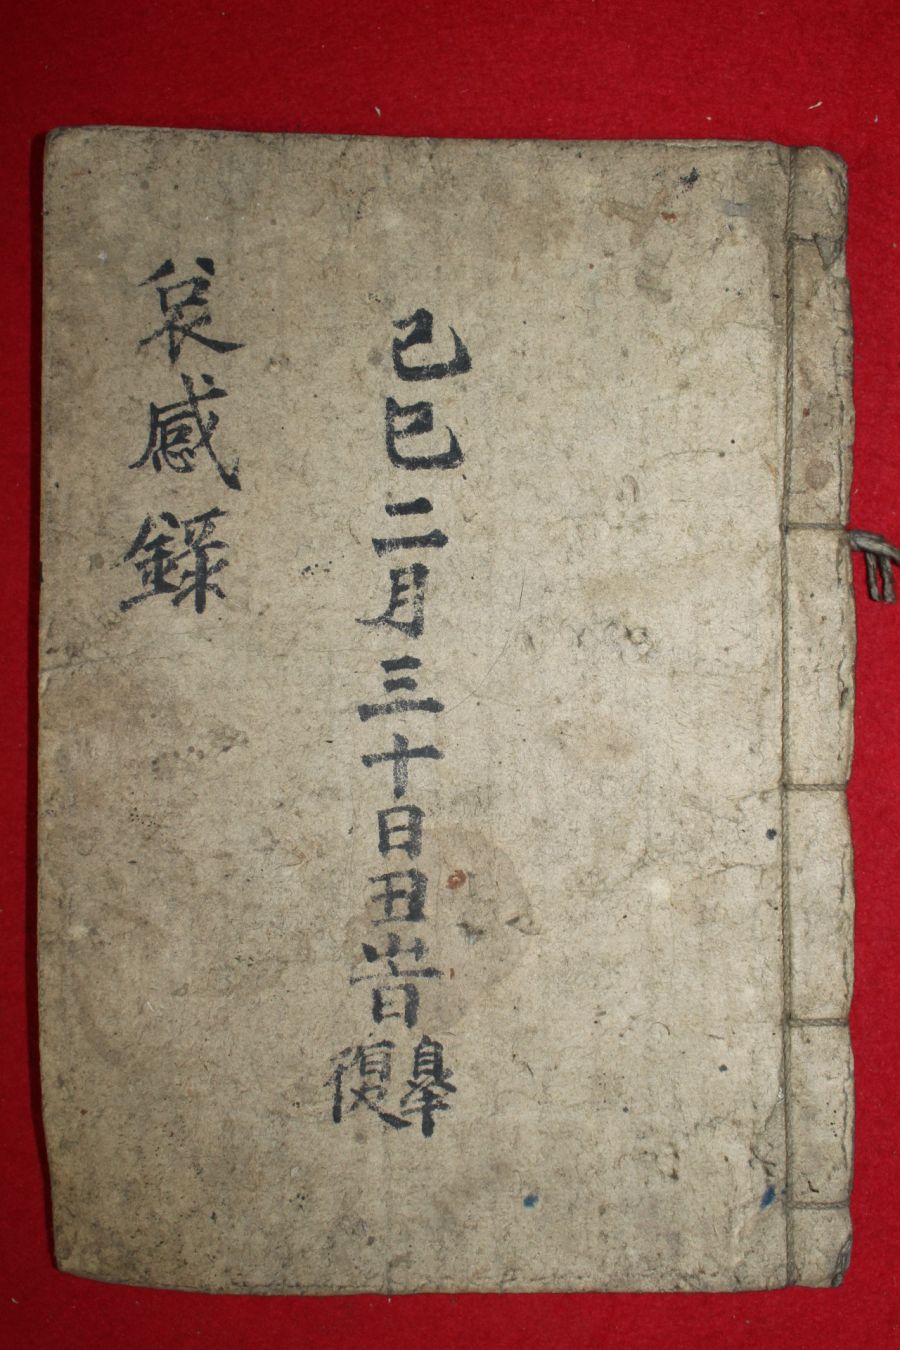 己巳二月三十日丑峕皐復
哀感錄